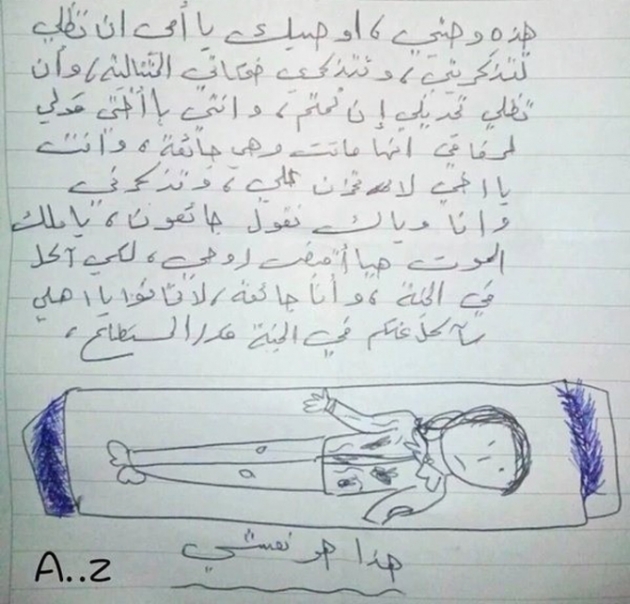 هذه وصيتي، اوصيك يا أمي ان تظلي
تتذكريني، وتتذكري ضحكاتي القتالية، وأن
تظلي تحديلي إن نمتم، وانتي يا أختي قولي
لرفاقي انها ماتت وهي جائعة، وانت
يا اخي لا تحزن علي، وتذكرني
وانا وياك نقول جائعون، يا ملك
الموت هيا أقبض روحي، لكي آكل
في الجنة، وأنا جائعة، لا تخافوا يا اهلي
سآكل عنكم في الجنة قدر المستطاع،
هذا هو نعشي
A..z